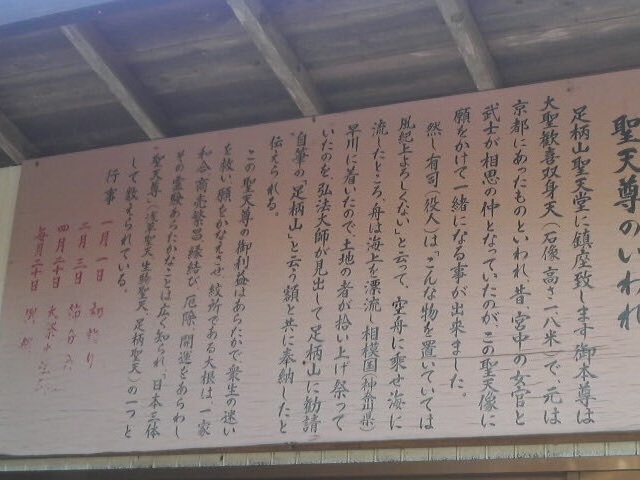 聖天尊のいわれ
足柄山聖天堂に鎮座致します御本尊は
大聖歓喜双身天(石像高さ一、八米)で、元は
京都にあったものといわれ、昔、宮中の女官と
武士が相思の仲となっていたのが、この聖天像に
願をかけて一緒になる事が出来ました。
然し有司(役人)は「こんな物を置いていては
風紀上よろしくない」と云って、空舟に乗せ海に
流したところ、舟は海上を漂流、相模国(神奈川県)
早川に着いたので、土地の者が拾い上げ祭って
いたのを、弘法大師が見出して足柄山に勧請
自筆の「足柄山」と云う額と共に奉納したと
伝えられる。
この聖天尊の御利益はあらたかで衆生の迷い
を救い、願をかなえさせ、紋所である大根は、一家
和合、商売繁昌、縁結び、厄除、開運をあらわし
その霊験あらたかなことは広く知られ、日本三体
聖天尊(浅草聖天、生駒聖天、足柄聖天)の一つと
して数えられている。
行事
一月一日
二月三日 節分会
四月二十日 大祭
毎月二十日